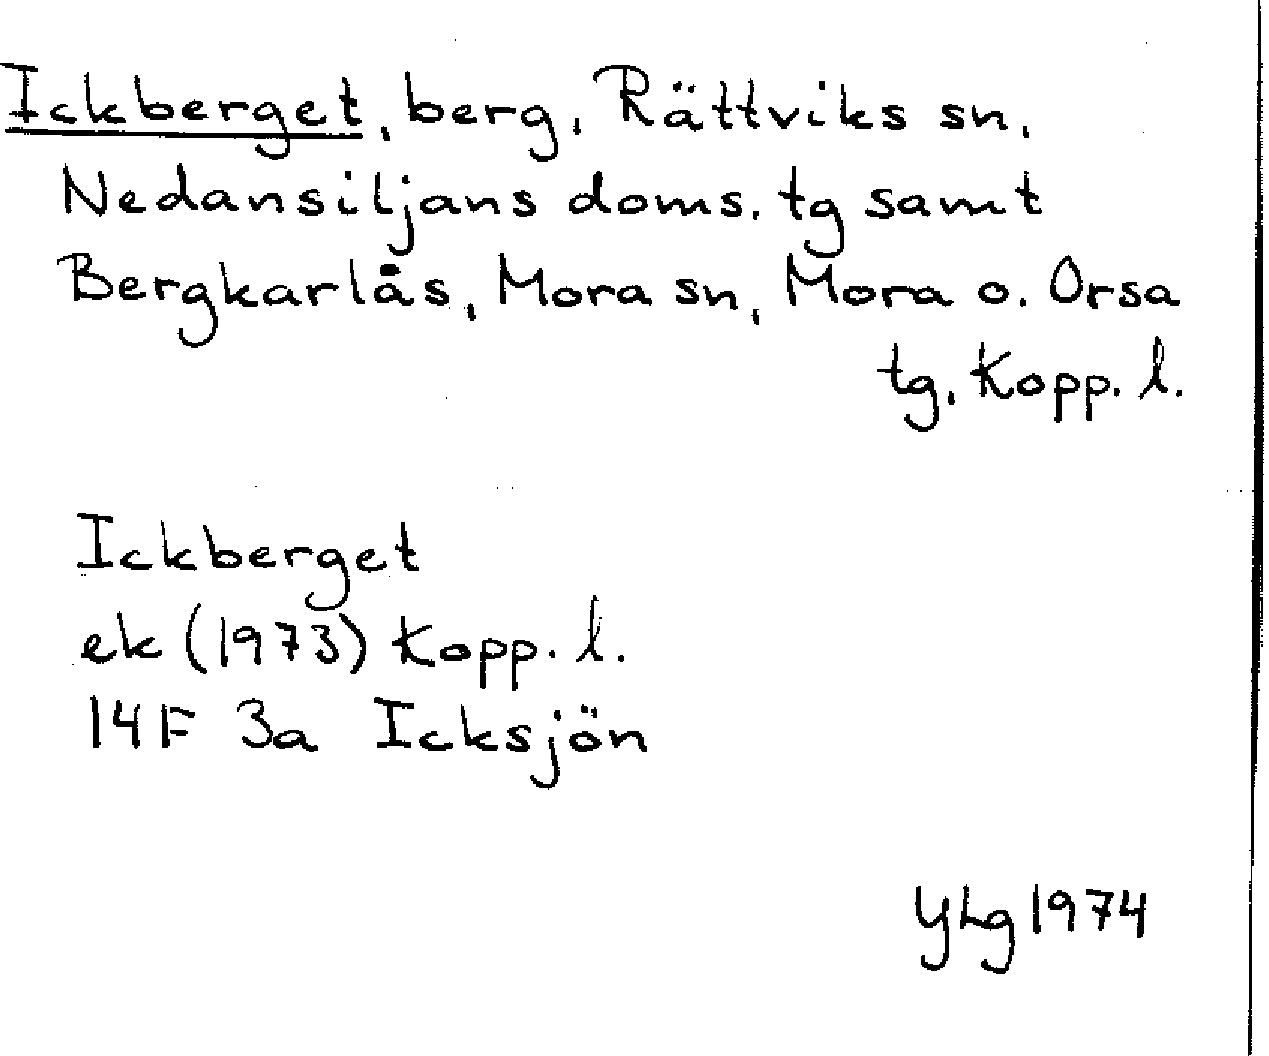 Ickberget, berg, Rättviks sn,
Nedansiljans doms. tg samt
Bergkarlås, Mora sn, Mora o. Orsa
tg, Kopp. l.
Ickberget
ek (1973) Kopp. l.
14F 3a Icksjön
YLg 1974